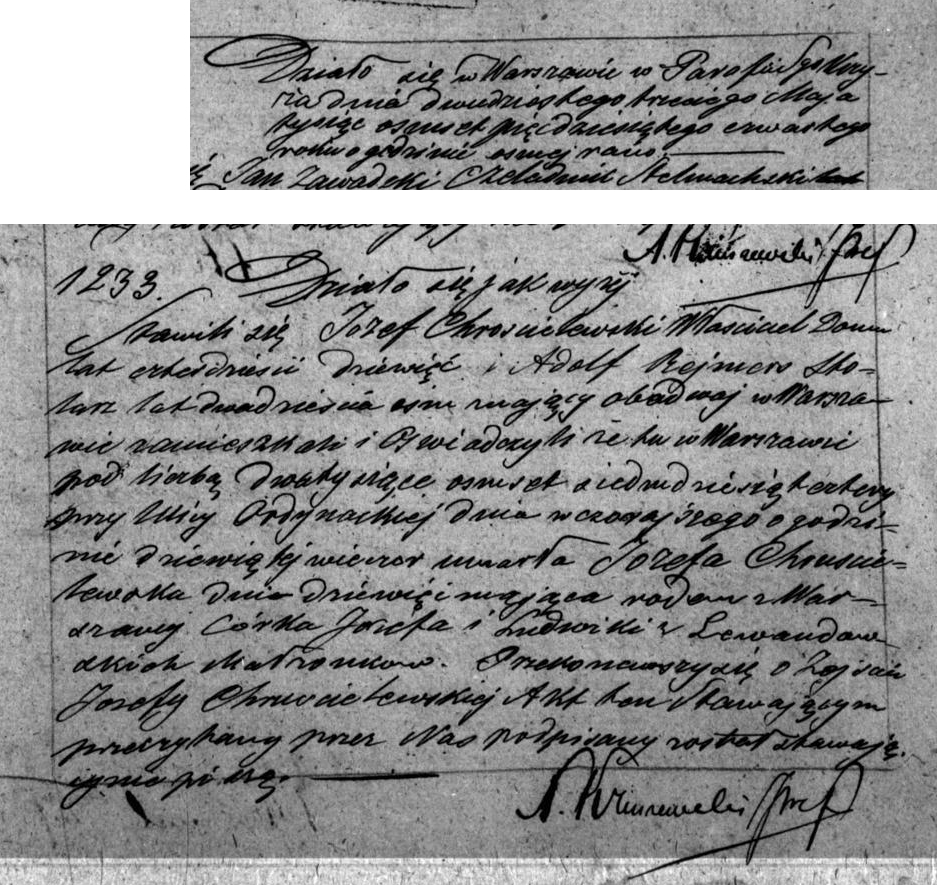 Działo się w Warszawie w Parafii Sgo Krzy-
rza dnia dwudziestego trzeciego Maja
tysiąc osmset pięcdziesiątego czwartego
roku o godzinie osmej rano.
Jan Zawadzki Czeladnik Stelmachski
A. Kruszewski
1233. Działo się jak wyżej
Stawili się Jozef Chroscielewski Własciciel Domu
lat czterdziesci dziewięć i Adolf Rejmers Sto-
larz lat dwadziescia osm mający obadwaj w Warsza-
wie zamieszkali i Oswiadczyli że tu w Warszawie
pod liczbą dwatysiące osmset siedmdziesiąt cztery
przy Ulicy Ordynackiej dnia wczorajszego o godzi-
nie dziewiątej wieczor umarła Jozefa Chruscie-
lewska dni dziewięć mająca rodem z War-
szawy Córka Jozefa i Ludwiki z Lewandow
skich Małżonkow. Przekonawszy się o Zejściu
Jozefy Chruscielewskiej Akt ten Stawającym
przeczytany przez Nas podpisany został stawają-
cy nie piszą.
A. Kruszewski